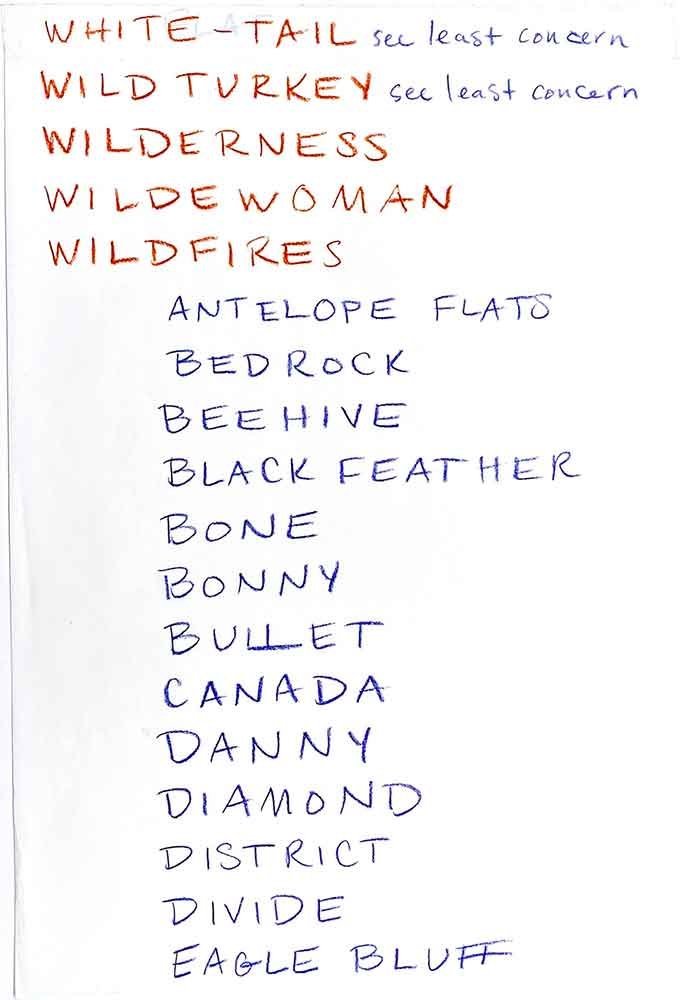 WHITE-TAIL see least concern
WILD TURKEY see least concern
WILDERNESS
WILDEWOMAN
WILDFIRES
ANTELOPE FLATS
BEDROCK
BEEHIVE
BLACK FEATHER
BONE
BONNY
BULLET
CANADA
DANNY
DIAMOND
DISTRICT
DIVIDE
EAGLE BLUFF